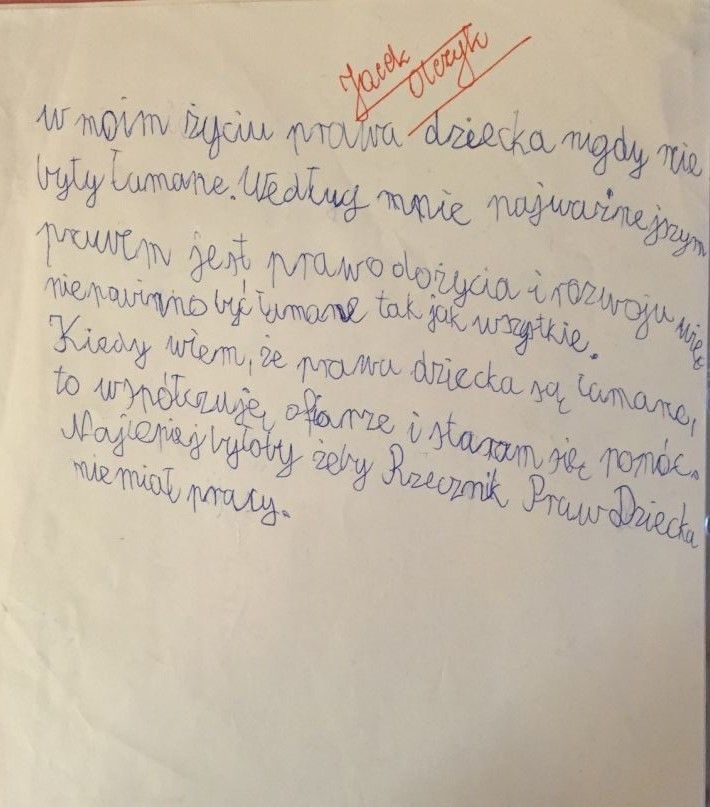 Jacek
Olczyk
w moim życiu prawa dziecka nigdy nie
były łamane. Według mnie najważnejszym
prawem jest prawo do życia i rozwoju więc
niepowinno być łamane tak jak wszystkie.
Kiedy wiem, że prawa dziecka są łamane,
to współczuję ofiarze i staram się pomóc.
Najlepiej byłoby żeby Rzecznik Praw Dziecka
nie miał pracy.